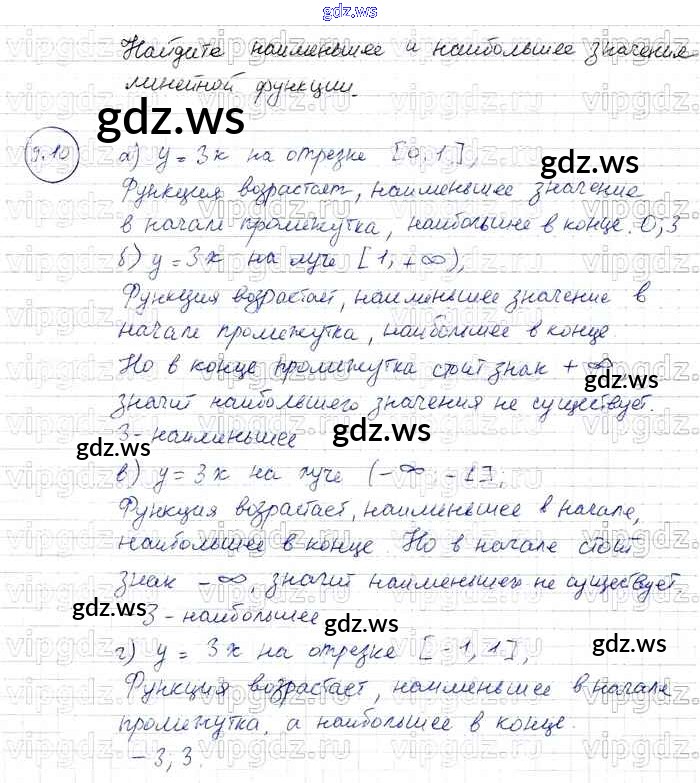 gdz.ws
Найдите наименьшее и наибольшее значения
линейной функции.
gdz.ws
9.10 а) y = 3x на отрезке [0,1],
gdz.ws
Функция возрастает, наименьшее значение
в начале промежутка, наибольшее в конце. 0; 3
б) y = 3x на луче [1, +∞),
Функция возрастает, наименьшее значение в
начале промежутка, наибольшее в конце
Но в конце промежутка стоит знак +∞
gdz.ws
значит наибольшего значения не существует.
3 - наименьшее
gdz.ws
gdz.ws
в) y = 3x на луче (-∞ -1],
Функция возрастает, наименьшее в начале,
наибольшее в конце. Но в начале стоит
знак -∞, значит наименьшего не существует.
-3 - наибольшее
gdz.ws
gdz.ws
gdz.ws
г) y = 3x на отрезке [-1, 1],
Функция возрастает, наименьшее в начале
промежутка, а наибольшее в конце.
-3; 3.